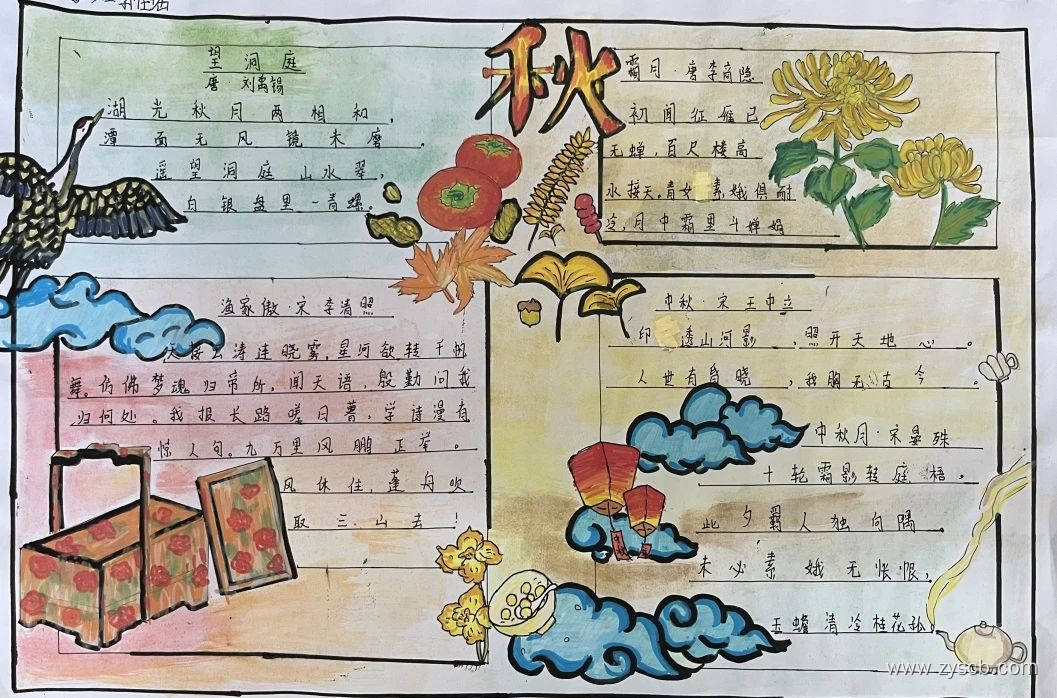 望洞庭
唐·刘禹锡
湖光秋月两相和,
潭面无风镜未磨。
遥望洞庭山水翠,
白银盘里一青螺。
秋
霜月·唐李商隐
初闻征雁已
无蝉,百尺楼高
水接天。青女素娥俱耐
冷,月中霜里斗婵娟
渔家傲·宋李清照
天接云涛连晓雾,星河欲转千帆
舞。仿佛梦魂归帝所,闻天语,殷勤问我
归何处。我报长路嗟日暮,学诗漫有
惊人句。九万里风鹏正举。
风休住,蓬舟吹
取三山去!
中秋·宋王中立
印透山河影,照开天地心。
人世有昏晓,我胸无古今。
中秋月·宋晏殊
十轮霜影转庭梧。
此夕羁人独向隅。
未必素娥无怅恨,
玉蟾清冷桂花孤。
www.zyscb.com